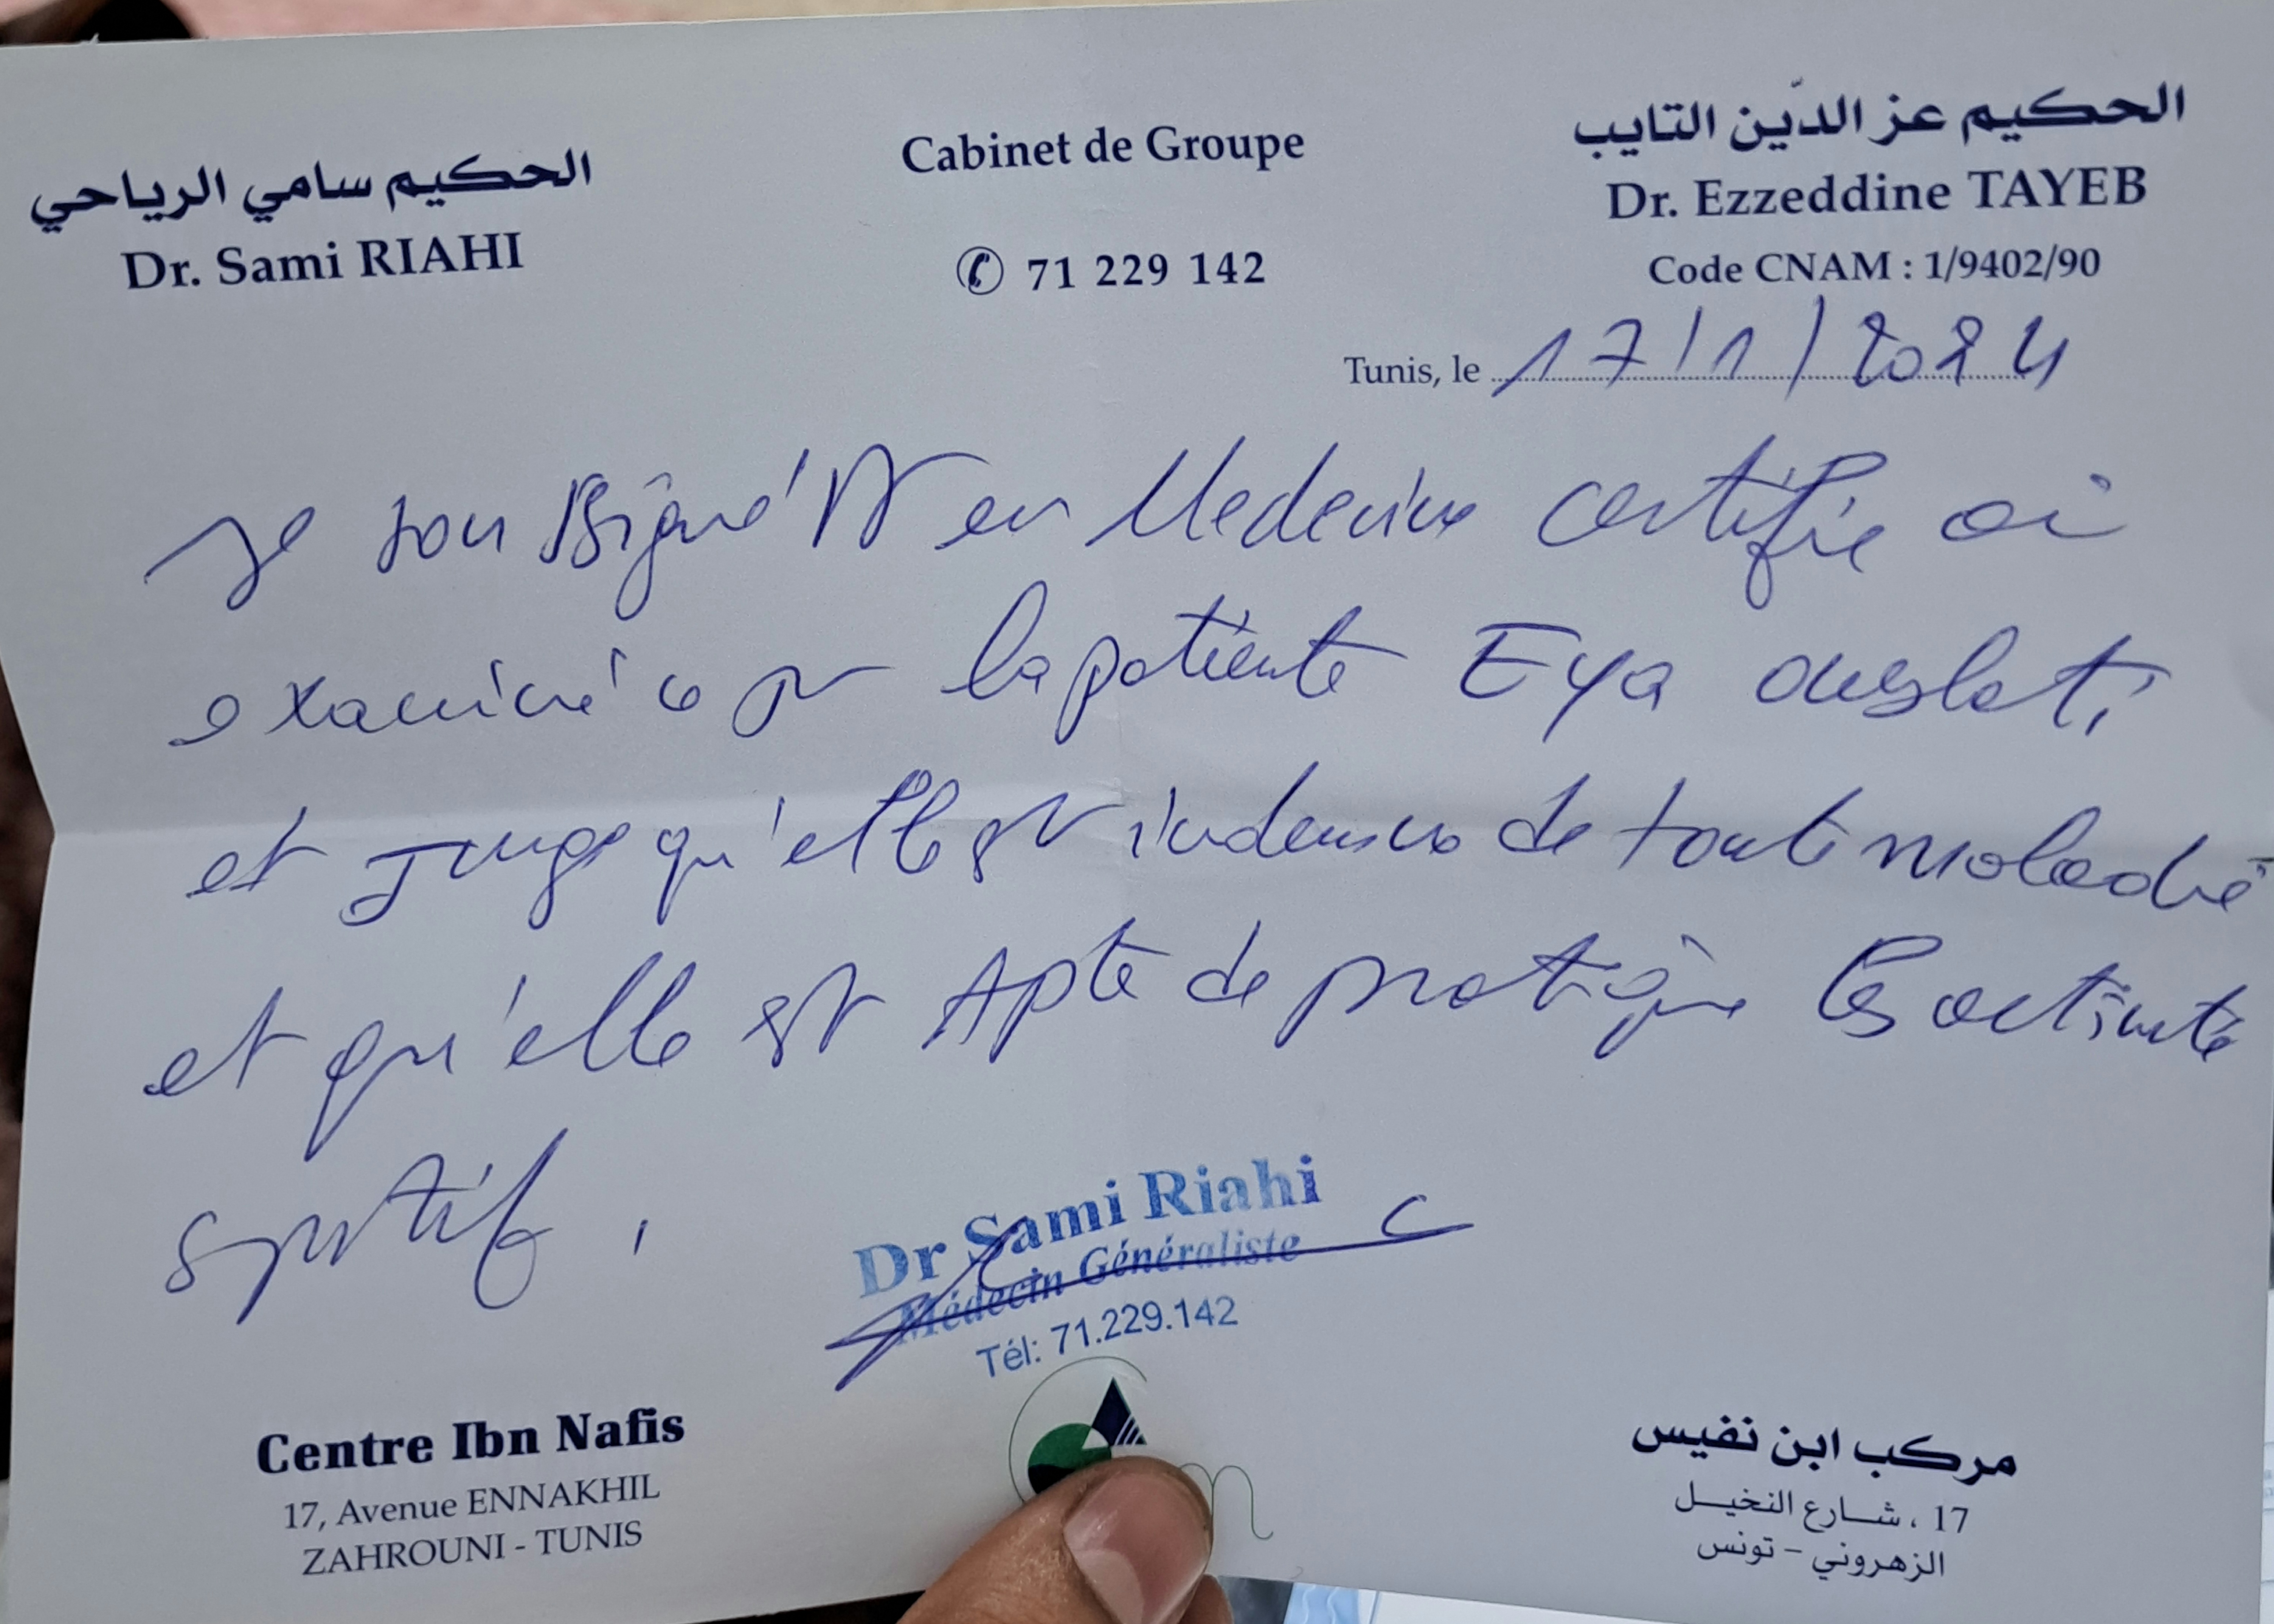 الحكيم سامي الرياحي
Dr. Sami RIAHI
Cabinet de Groupe
✆ 71 229 142
الحكيم عز الدّين التايب
Dr. Ezzeddine TAYEB
Code CNAM : 1/9402/90
Tunis, le 17/1/2024
Je soussigné Dr en Medecine certifie
examiné ce jr la patiente Eya ouslati
et juge qu'elle est indemne de toute maladie
et qu'elle est Apte de pratique les activité
sportif.
Dr Sami Riahi
Médecin Généraliste
Tél: 71.229.142
Centre Ibn Nafis
17, Avenue ENNAKHIL
ZAHROUNI - TUNIS
مركب ابن نفيس
17 ، شارع النخيل
الزهروني - تونس